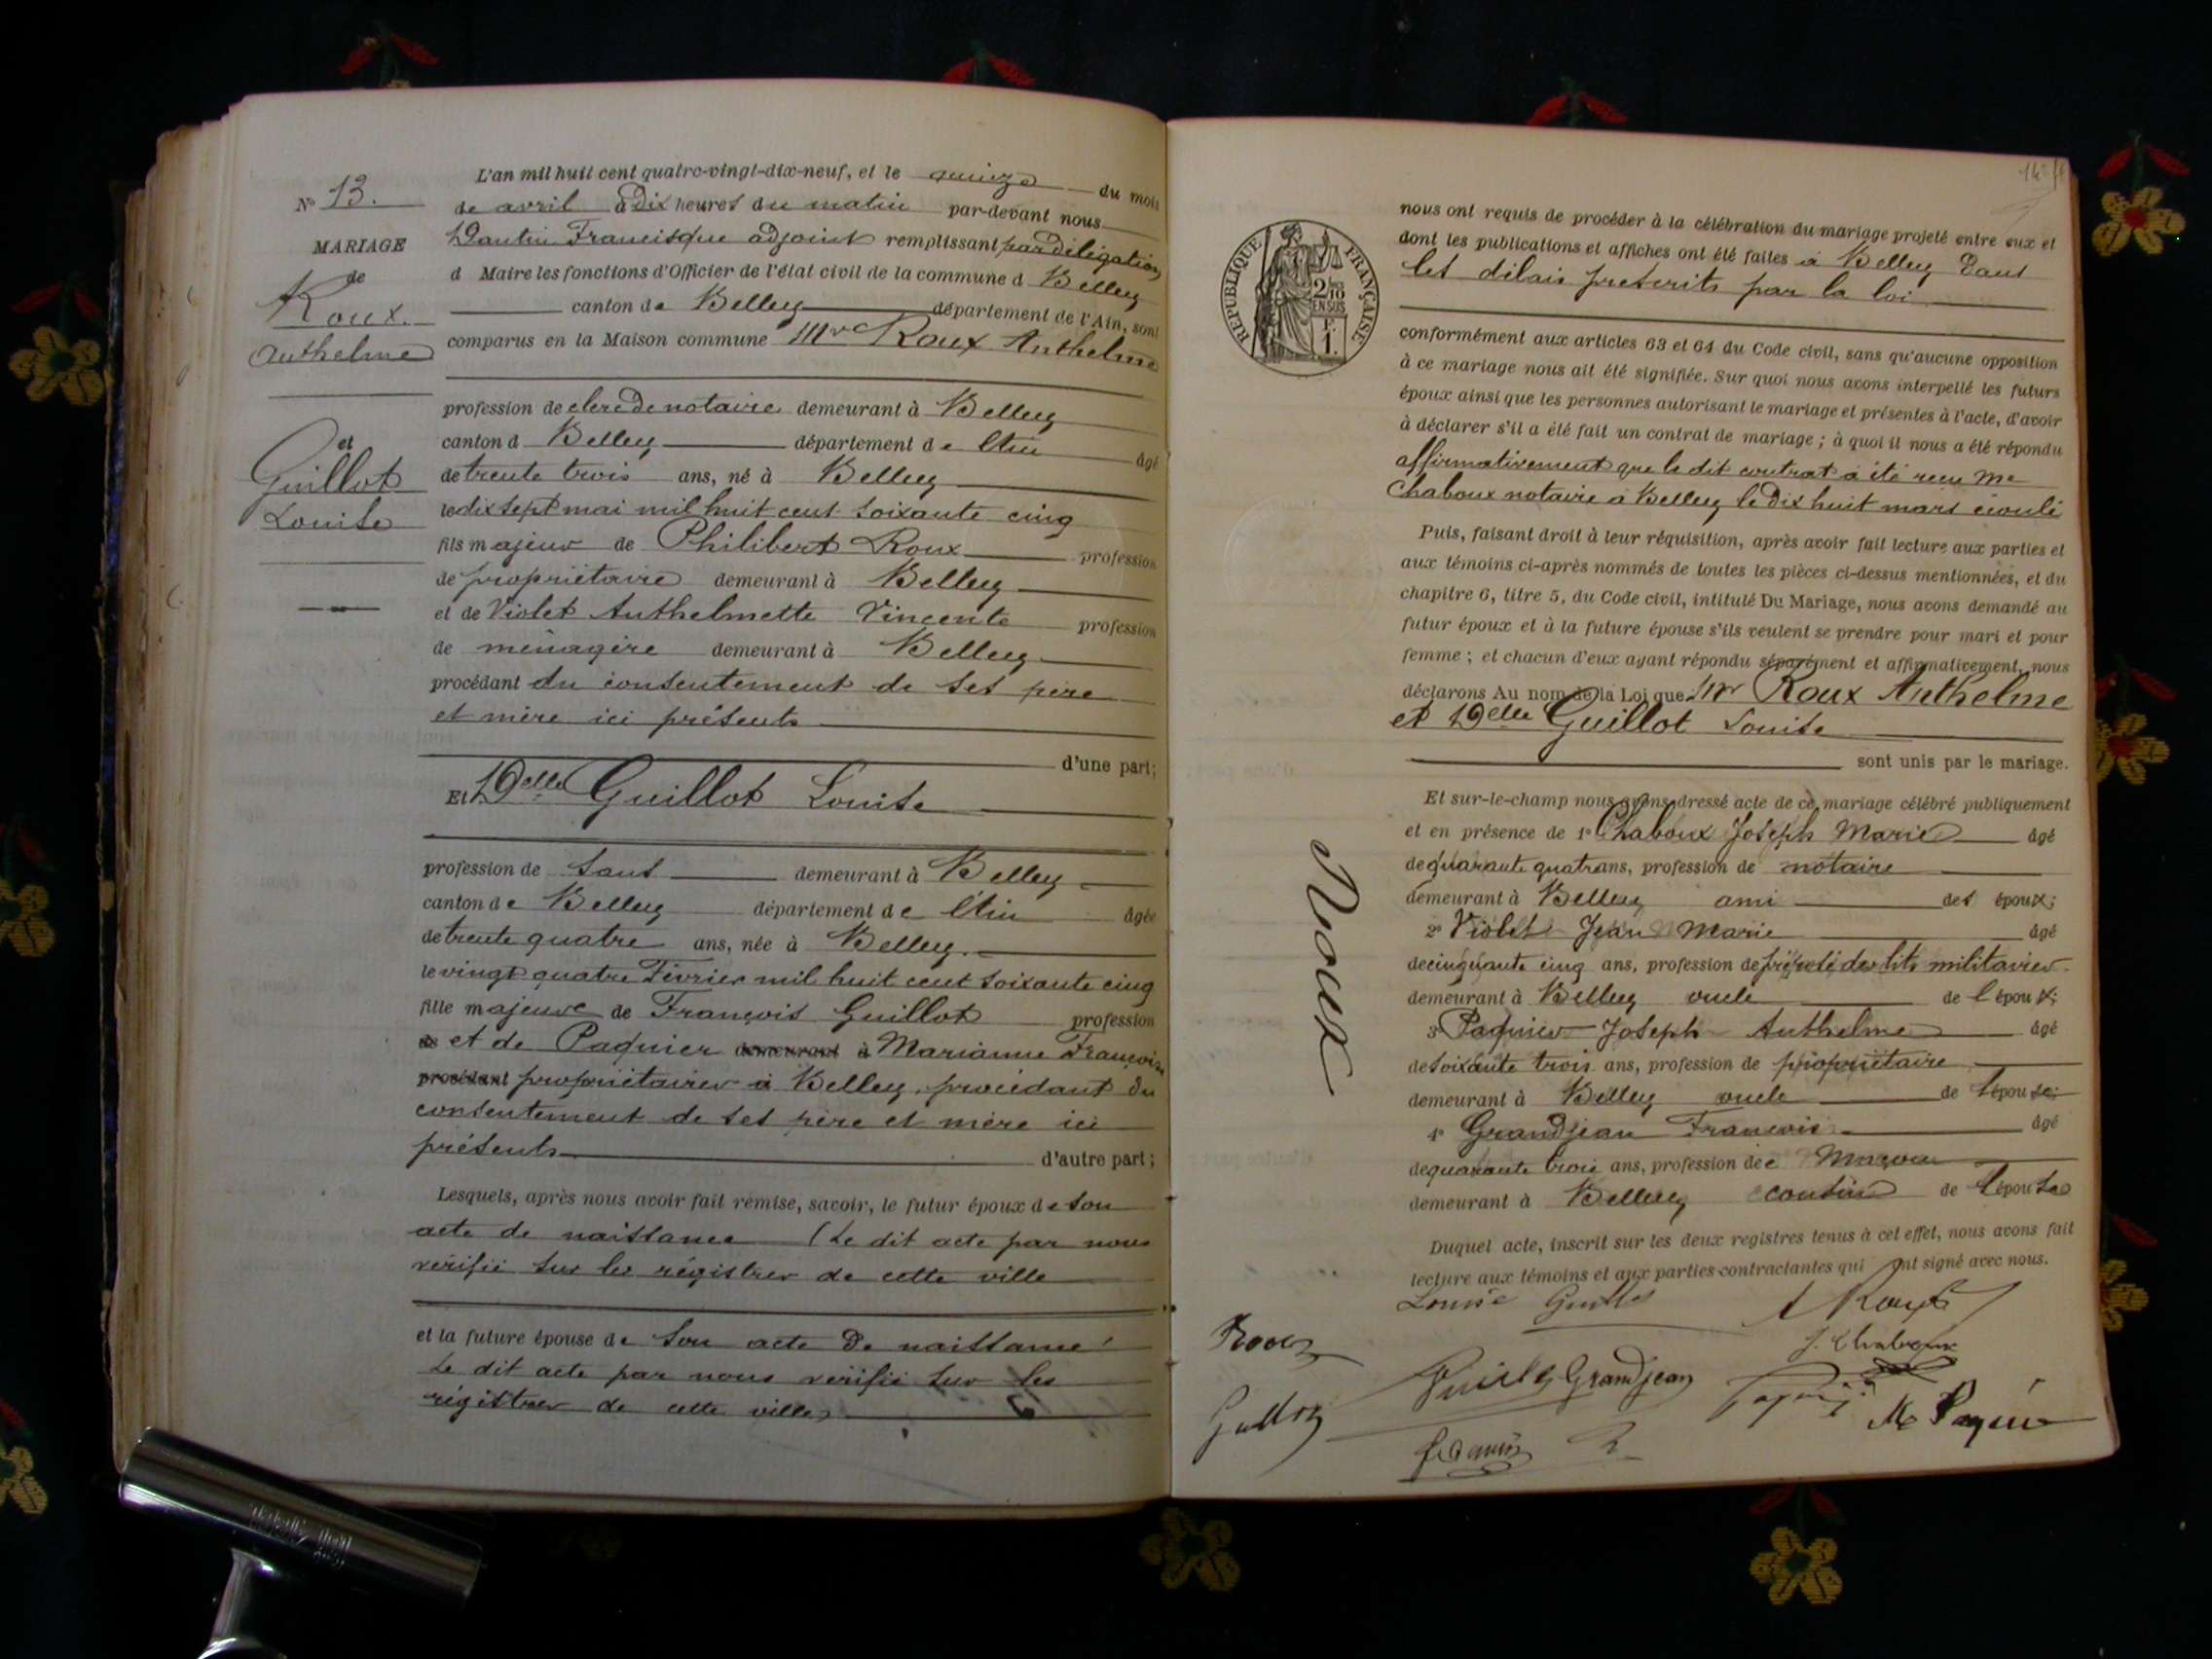 N° 13.
MARIAGE
de
Roux
Anthelme
et
Guillot
Louise
L'an mil huit cent quatre-vingt-dix-neuf, et le quinze du mois
de avril à dix heures du matin par-devant nous
Dantin Francisque adjoint remplissant par délégation
d Maire les fonctions d'Officier de l'état civil de la commune d Belley
canton de Belley département de l'Ain, sont
comparus en la Maison commune Mr Roux Anthelme
profession de clerc de notaire demeurant à Belley
canton d Belley département de l'Ain âgé
de trente trois ans, né à Belley
le dix sept mai mil huit cent soixante cinq
fils majeur de Philibert Roux profession
de propriétaire demeurant à Belley
et de Violet Anthelmette Vincente profession
de ménagère demeurant à Belley
procédant du consentement de ses père
et mère ici présents
d'une part;
Et Delle Guillot Louise
profession de sans demeurant à Belley
canton de Belley département de l'Ain âgée
de trente quatre ans, née à Belley.
le vingt quatre Février mil huit cent soixante cinq
fille majeure de François Guillot profession
de et de Paquier demeurant à Marianne Françoise
procédant propriétaires à Belley, procédant du
consentement de ses père et mère ici
présents d'autre part;
Lesquels, après nous avoir fait remise, savoir, le futur époux de son
acte de naissance (Le dit acte par nous
vérifié sur les régistres de cette ville
et la future épouse de son acte de naissance
Le dit acte par nous vérifié sur les
régistres de cette ville
REPUBLIQUE FRANÇAISE
2/10
EN SUS
1.
nous ont requis de procéder à la célébration du mariage projeté entre eux et
dont les publications et affiches ont été faites à Belley dans
les délais prescrits par la loi
conformément aux articles 63 et 64 du Code civil, sans qu'aucune opposition
à ce mariage nous ait été signifiée. Sur quoi nous avons interpellé les futurs
époux ainsi que les personnes autorisant le mariage et présentes à l'acte, d'avoir
à déclarer s'il a été fait un contrat de mariage; à quoi il nous a été répondu
affirmativement que le dit contrat a été reçu Me
Chaboux notaire à Belley le dix huit mars écoulé
Puis, faisant droit à leur réquisition, après avoir fait lecture aux parties et
aux témoins ci-après nommés de toutes les pièces ci-dessus mentionnées, et du
chapitre 6, titre 5, du Code civil, intitulé Du Mariage, nous avons demandé au
futur époux et à la future épouse s'ils veulent se prendre pour mari et pour
femme; et chacun d'eux ayant répondu séparément et affirmativement, nous
déclarons Au nom de la Loi que Mr Roux Anthelme
et Delle Guillot Louise
sont unis par le mariage.
Et sur-le-champ nous avons dressé acte de ce mariage célébré publiquement
et en présence de 1° Chaboux Joseph Marie âgé
de quarante quatr ans, profession de notaire
demeurant à Belley ami des époux;
2° Violet Jean Marie âgé
de cinquante cinq ans, profession de préposé des lits militaires
demeurant à Belley oncle de l'époux;
3° Paquier Joseph Anthelme âgé
de soixante trois ans, profession de propriétaire
demeurant à Belley oncle de l'épouse;
4° Grandjean François âgé
de quarante trois ans, profession de Maçon
demeurant à Belley cousin de l'épouse
Duquel acte, inscrit sur les deux registres tenus à cet effet, nous avons fait
lecture aux témoins et aux parties contractantes qui ont signé avec nous.
Louise Guillot
A Roux
Roux
J. Chaboux
Grandjean
Guillot
M Paquier
Roux